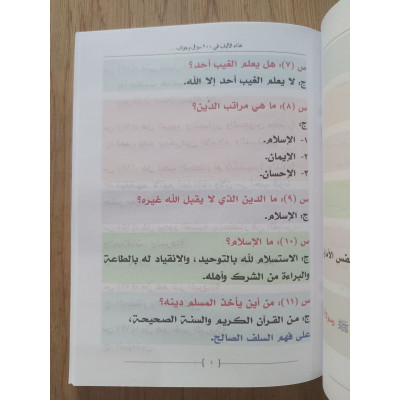 غذاء الألباب في ٢٠٠ سؤال وجواب ..
س (٧): هل يعلم الغيب أحد؟
ج: لا يعلم الغيب أحد إلا الله.
س (٨): ما هي مراتب الدِّين؟
ج:
١- الإسلام.
٢- الإيمان.
٣- الإحسان.
س (٩): ما الدين الذي لا يقبل الله غيره؟
ج: الإسلام.
س (١٠): ما الإسلام؟
ج: الاستسلام لله بالتوحيد، والانقياد له بالطاعة
والبراءة من الشرك وأهله.
س (١١): من أين يأخذ المسلم دينه؟
ج: من القرآن الكريم والسنة الصحيحة،
على فهم السلف الصالح.